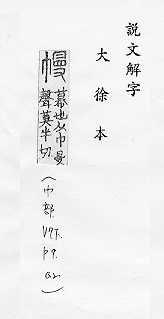 說文解字
大徐本
幔 幕也从巾曼
聲莫半切
(巾部.